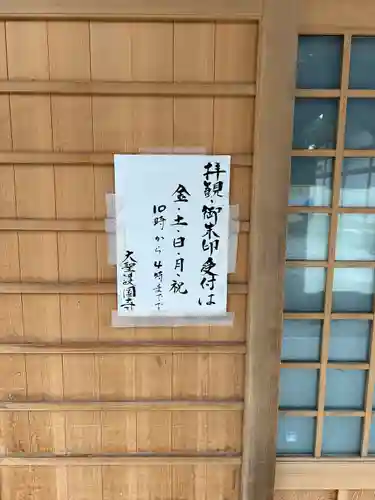 拝観・御朱印受付は
金・土・日・月・祝
10時から4時まで
大聖護國寺